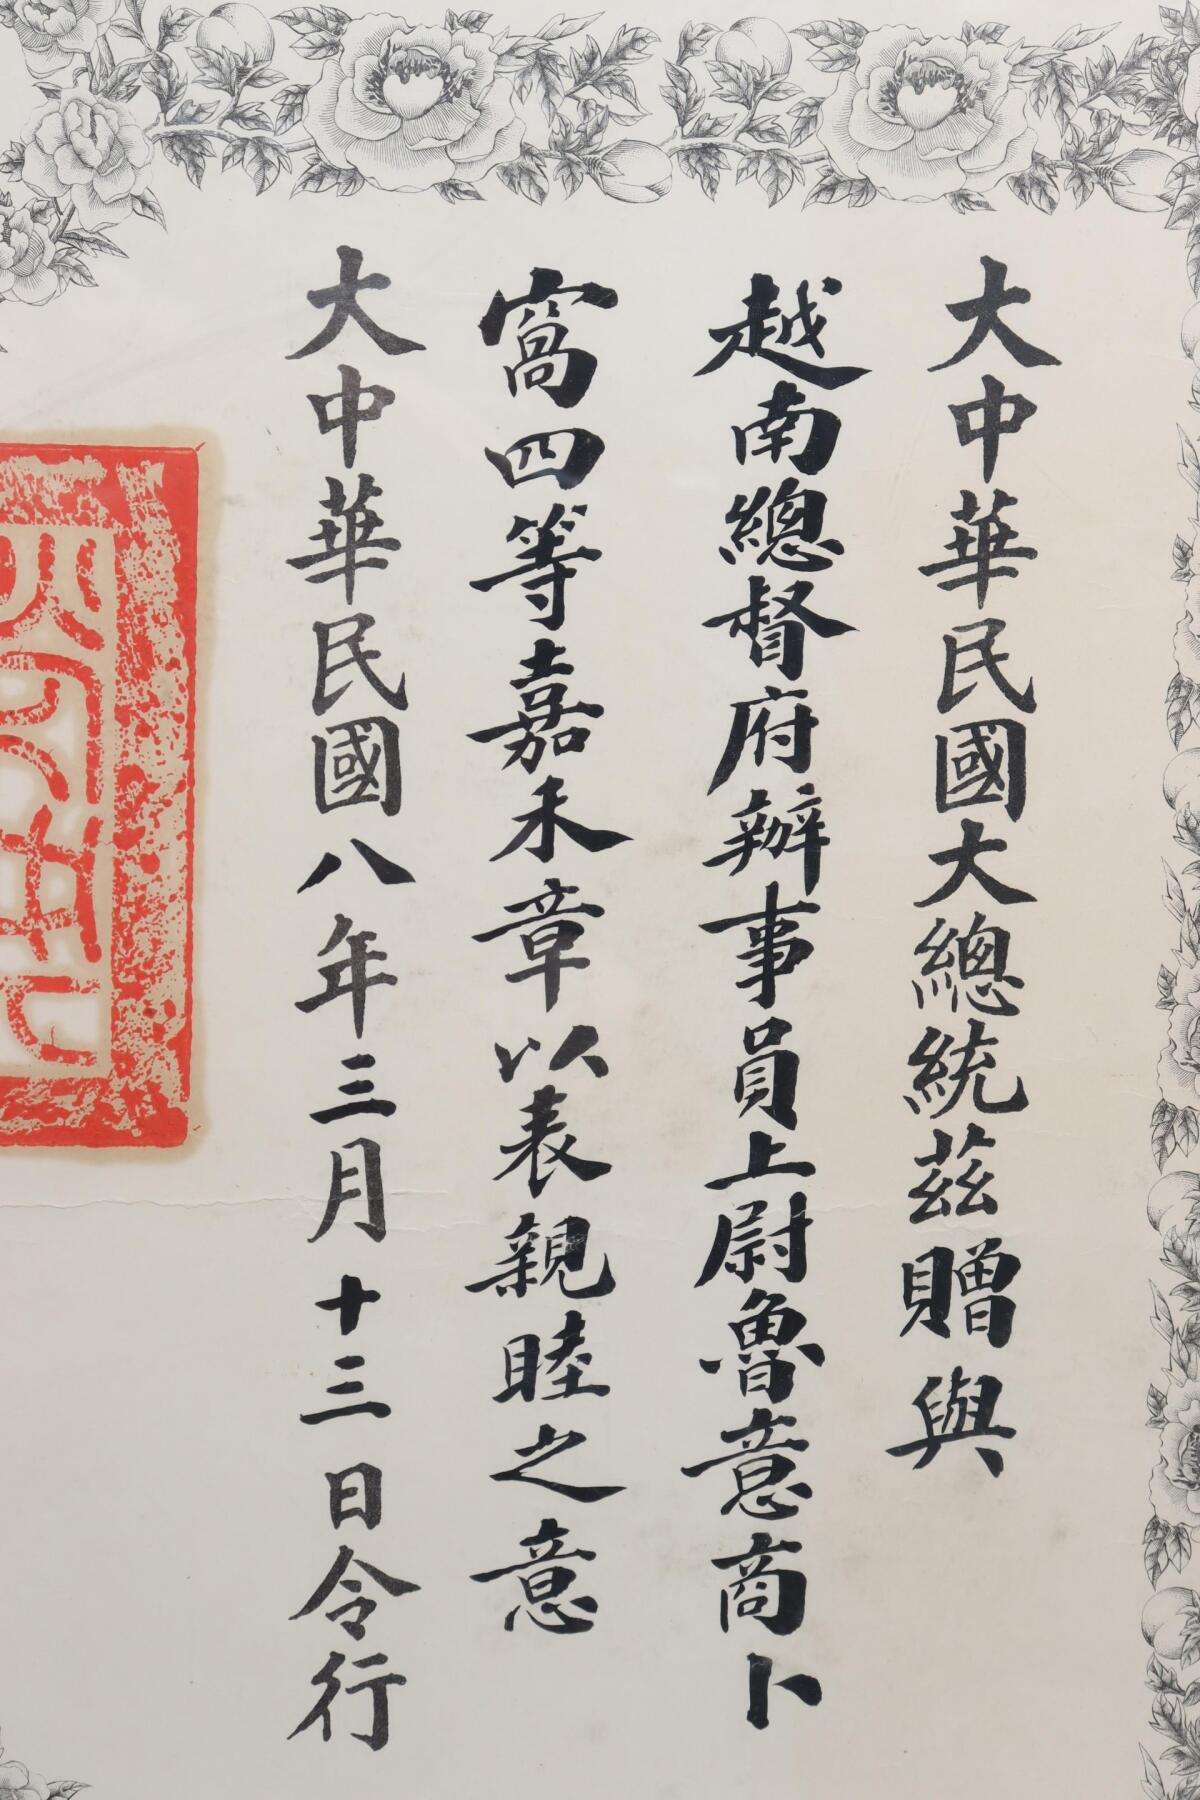 大中華民國大總統茲贈與
越南總督府辦事員上尉魯意商卜
窩四等嘉禾章以表親睦之意
大中華民國八年三月十三日令行